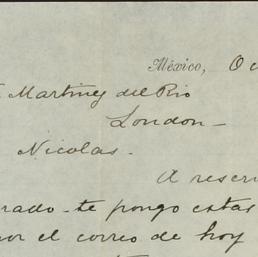 México, O
Martinez del Rio
London-
Nicolas.
A reser
rado- te pongo estas
or el correo de hoy